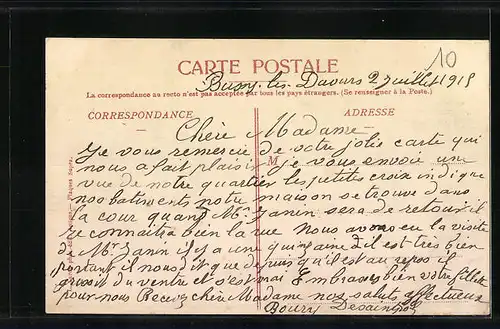 10
CARTE POSTALE
Bussy-les-Davours 2 juillet 1915
La correspondance au recto n'est pas acceptée par tous les pays étrangers. (Se renseigner à la Poste.)
CORRESPONDANCE
ADRESSE
Chère Madame
Je vous remercie de votre jolie carte qui
nous a fait plaisir je vous envoie une
M
vue de notre quartier les petits croix indique
nos batiments notre maison se trouve dans
la cour quand Mr Janin sera de retour il
reconnaitra bien la rue Nous avons eu la visite
de Mr Janin il y a une quinzaine il est très bien
portant il nous dit que depuis qu'il est au repos il
grossit du ventre et s'est mai Embrassez bien votre fillette
pour nous Recevez chère Madame nos saluts affectueux
Boury